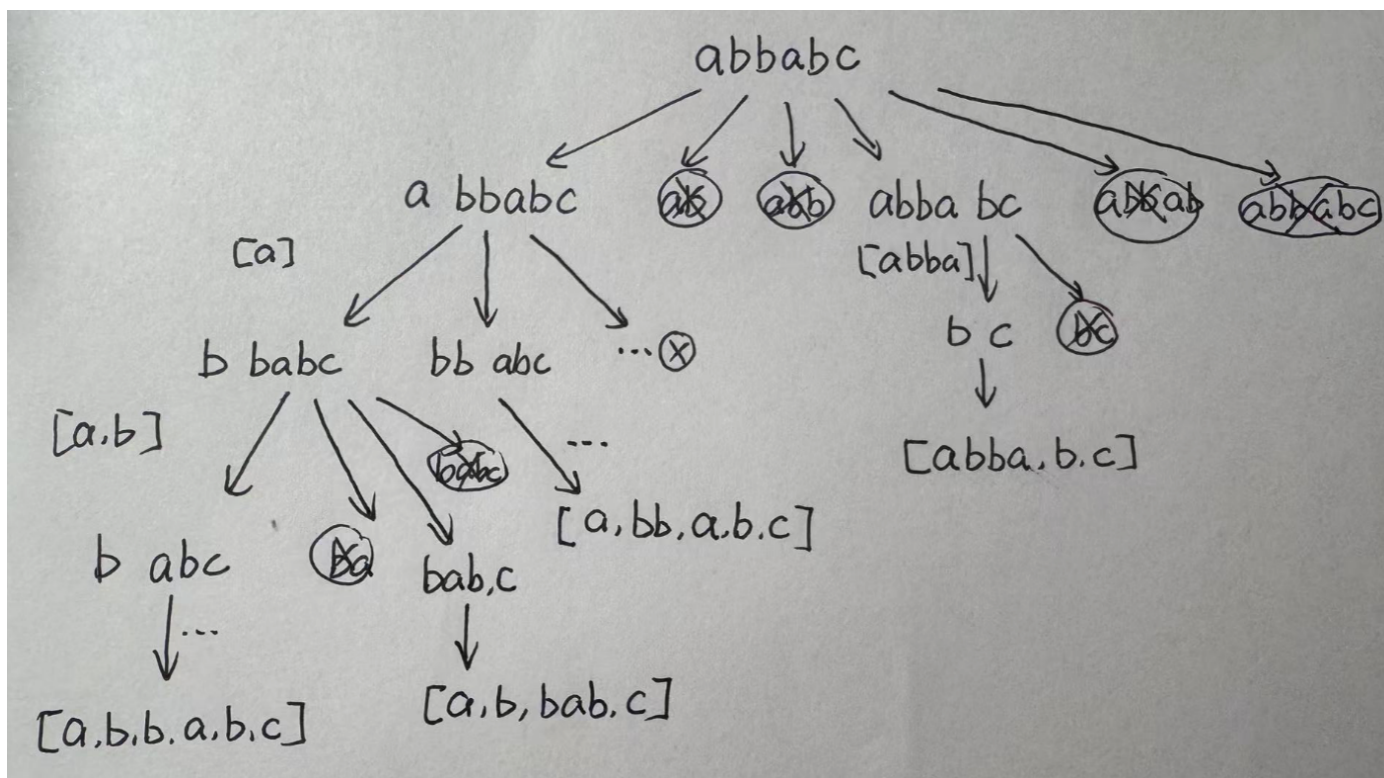 abbabc
a bbabc ab abb abba bc abbab abbabc
[a] [abba]
b babc bb abc ... x b c bc
[a.b] babc ... [abba.b.c]
b abc ba bab,c [a,bb,a.b.c]
...
[a.b.b.a,b,c] [a,b,bab.c]